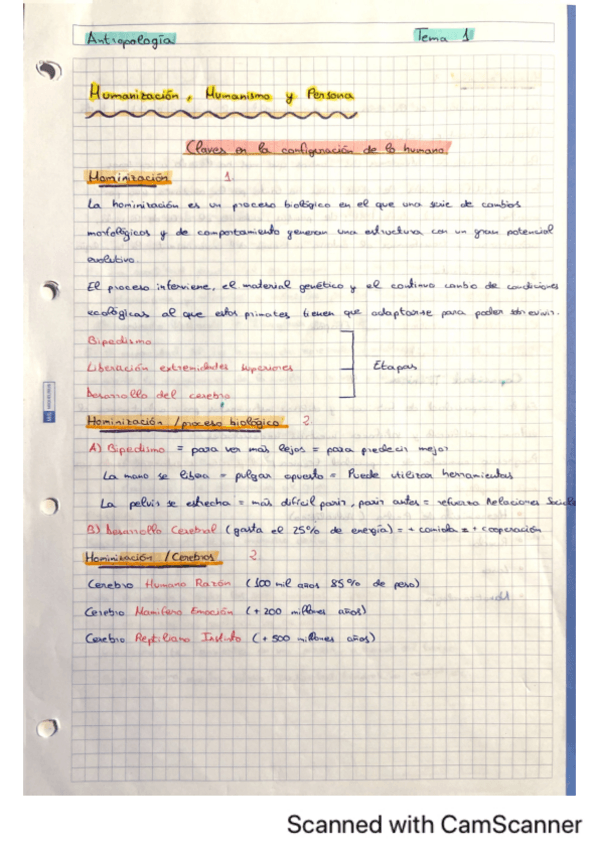 Antropología
Tema 1
Humanización, Humanismo y Persona
Claves en la configuración de lo humano.
Hominización 1
La hominización es un proceso biológico en el que una serie de cambios
morfológicos y de comportamiento generan una estructura con un gran potencial
evolutivo.
El proceso interviene, el material genético y el continuo cambio de condiciones
ecológicas al que estos primates tienen que adaptarse para poder sobrevivir.
Bipedismo
Liberación extremidades superiores
Desarrollo del cerebro
Etapas
Hominización / proceso biológico 2
A) Bipedismo = para ver más lejos = para predecir mejor
La mano se libera = pulgar opuesto = Puede utilizar herramientas
La pelvis se estrecha = más difícil parir, parir antes = refuerza Relaciones Sociales
B) Desarrollo Cerebral (gasta el 25% de energía) = + comida = + cooperación
Hominización / Cerebros 2
Cerebro Humano Razón (100 mil años 85% de peso)
Cerebro Mamífero Emoción (+ 200 millones años)
Cerebro Reptiliano Instinto (+ 500 millones años)
Scanned with CamScanner